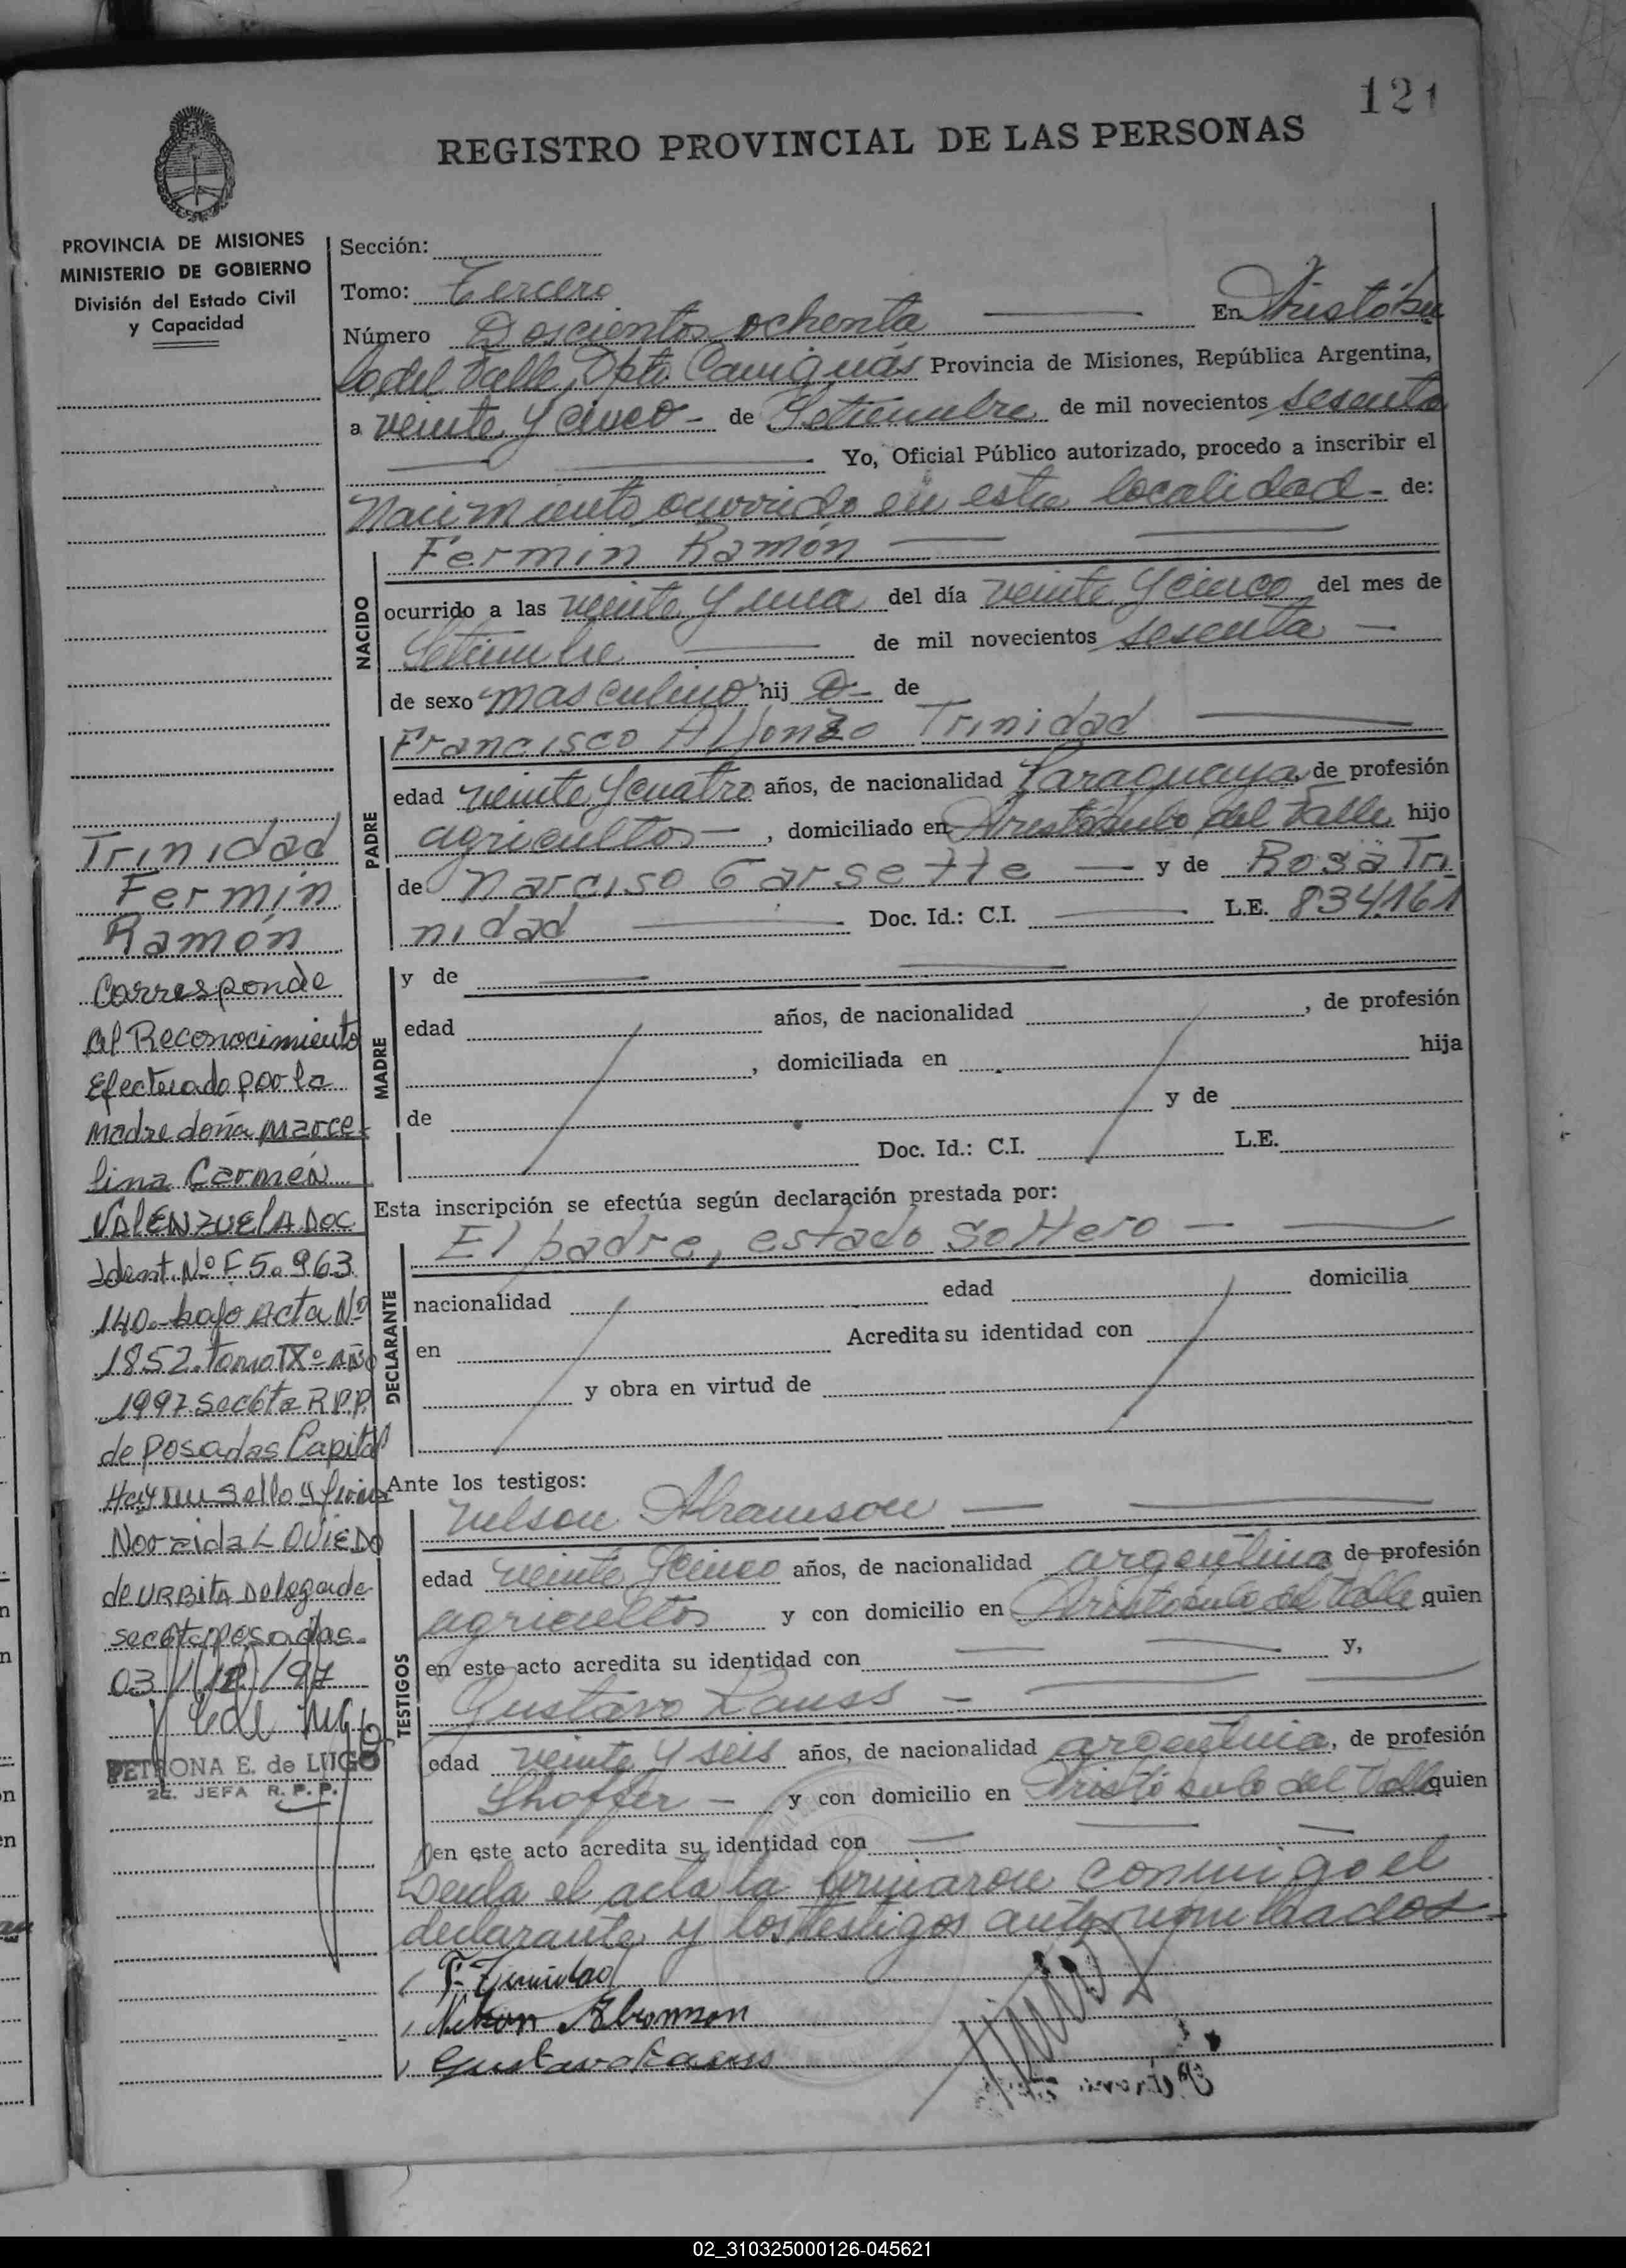 121
REGISTRO PROVINCIAL DE LAS PERSONAS
PROVINCIA DE MISIONES
MINISTERIO DE GOBIERNO
División del Estado Civil
y Capacidad
Sección:
Tomo: Tercero
Número Doscientos ochenta En Aristóbu
lo del Valle, Dpto. Cainguás Provincia de Misiones, República Argentina,
a veinte y cinco de Setiembre de mil novecientos sesenta
Yo, Oficial Público autorizado, procedo a inscribir el
Nacimiento ocurrido en esta localidad de:
NACIDO
Fermin Ramón
ocurrido a las veinte y una del día veinte y cinco del mes de
Setiembre de mil novecientos sesenta
de sexo masculino hij o de
PADRE
Francisco Alfonzo Trinidad
edad veinte y cuatro años, de nacionalidad Paraguaya, de profesión
agricultor, domiciliado en Aristóbulo del Valle hijo
de Narciso Garsette y de Rosa Tri
nidad Doc. Id.: C.I. L.E. 834.161
MADRE
y de
edad años, de nacionalidad , de profesión
, domiciliada en hija
de y de
Doc. Id.: C.I. L.E.
Esta inscripción se efectúa según declaración prestada por:
DECLARANTE
El padre, estado soltero
nacionalidad edad domicilia
en Acredita su identidad con
y obra en virtud de
Ante los testigos:
TESTIGOS
Nelson Abramson
edad veinte y cinco años, de nacionalidad argentina de profesión
agricultor y con domicilio en Aristóbulo del Valle quien
en este acto acredita su identidad con y,
Gustavo
edad veinte y seis años, de nacionalidad argentina, de profesión
Shoffer y con domicilio en Aristóbulo del Valle quien
en este acto acredita su identidad con
Leída el acta la firmaron conmigo el
declarante y los testigos antes nombrados
F. Trinidad
Nelson Abramson
Gustavo
Trinidad
Fermin
Ramón
Corresponde
al Reconocimiento
Efectuado por la
Madre doña Marce
lina Carmen
VALENZUELA DOC
Ident. Nº F 5.963
140.- bajo Acta Nº
1852. Tomo IXº AÑO
1997 Secc 6ta R.P.P.
de Posadas Capital
Hay un sello y firma
L OVIEDO
de URBITA Delegada
secc 6ta posadas.
03/ /97
PETRONA E. de LUGO
2ª. JEFA R. P. P.
02_310325000126-045621